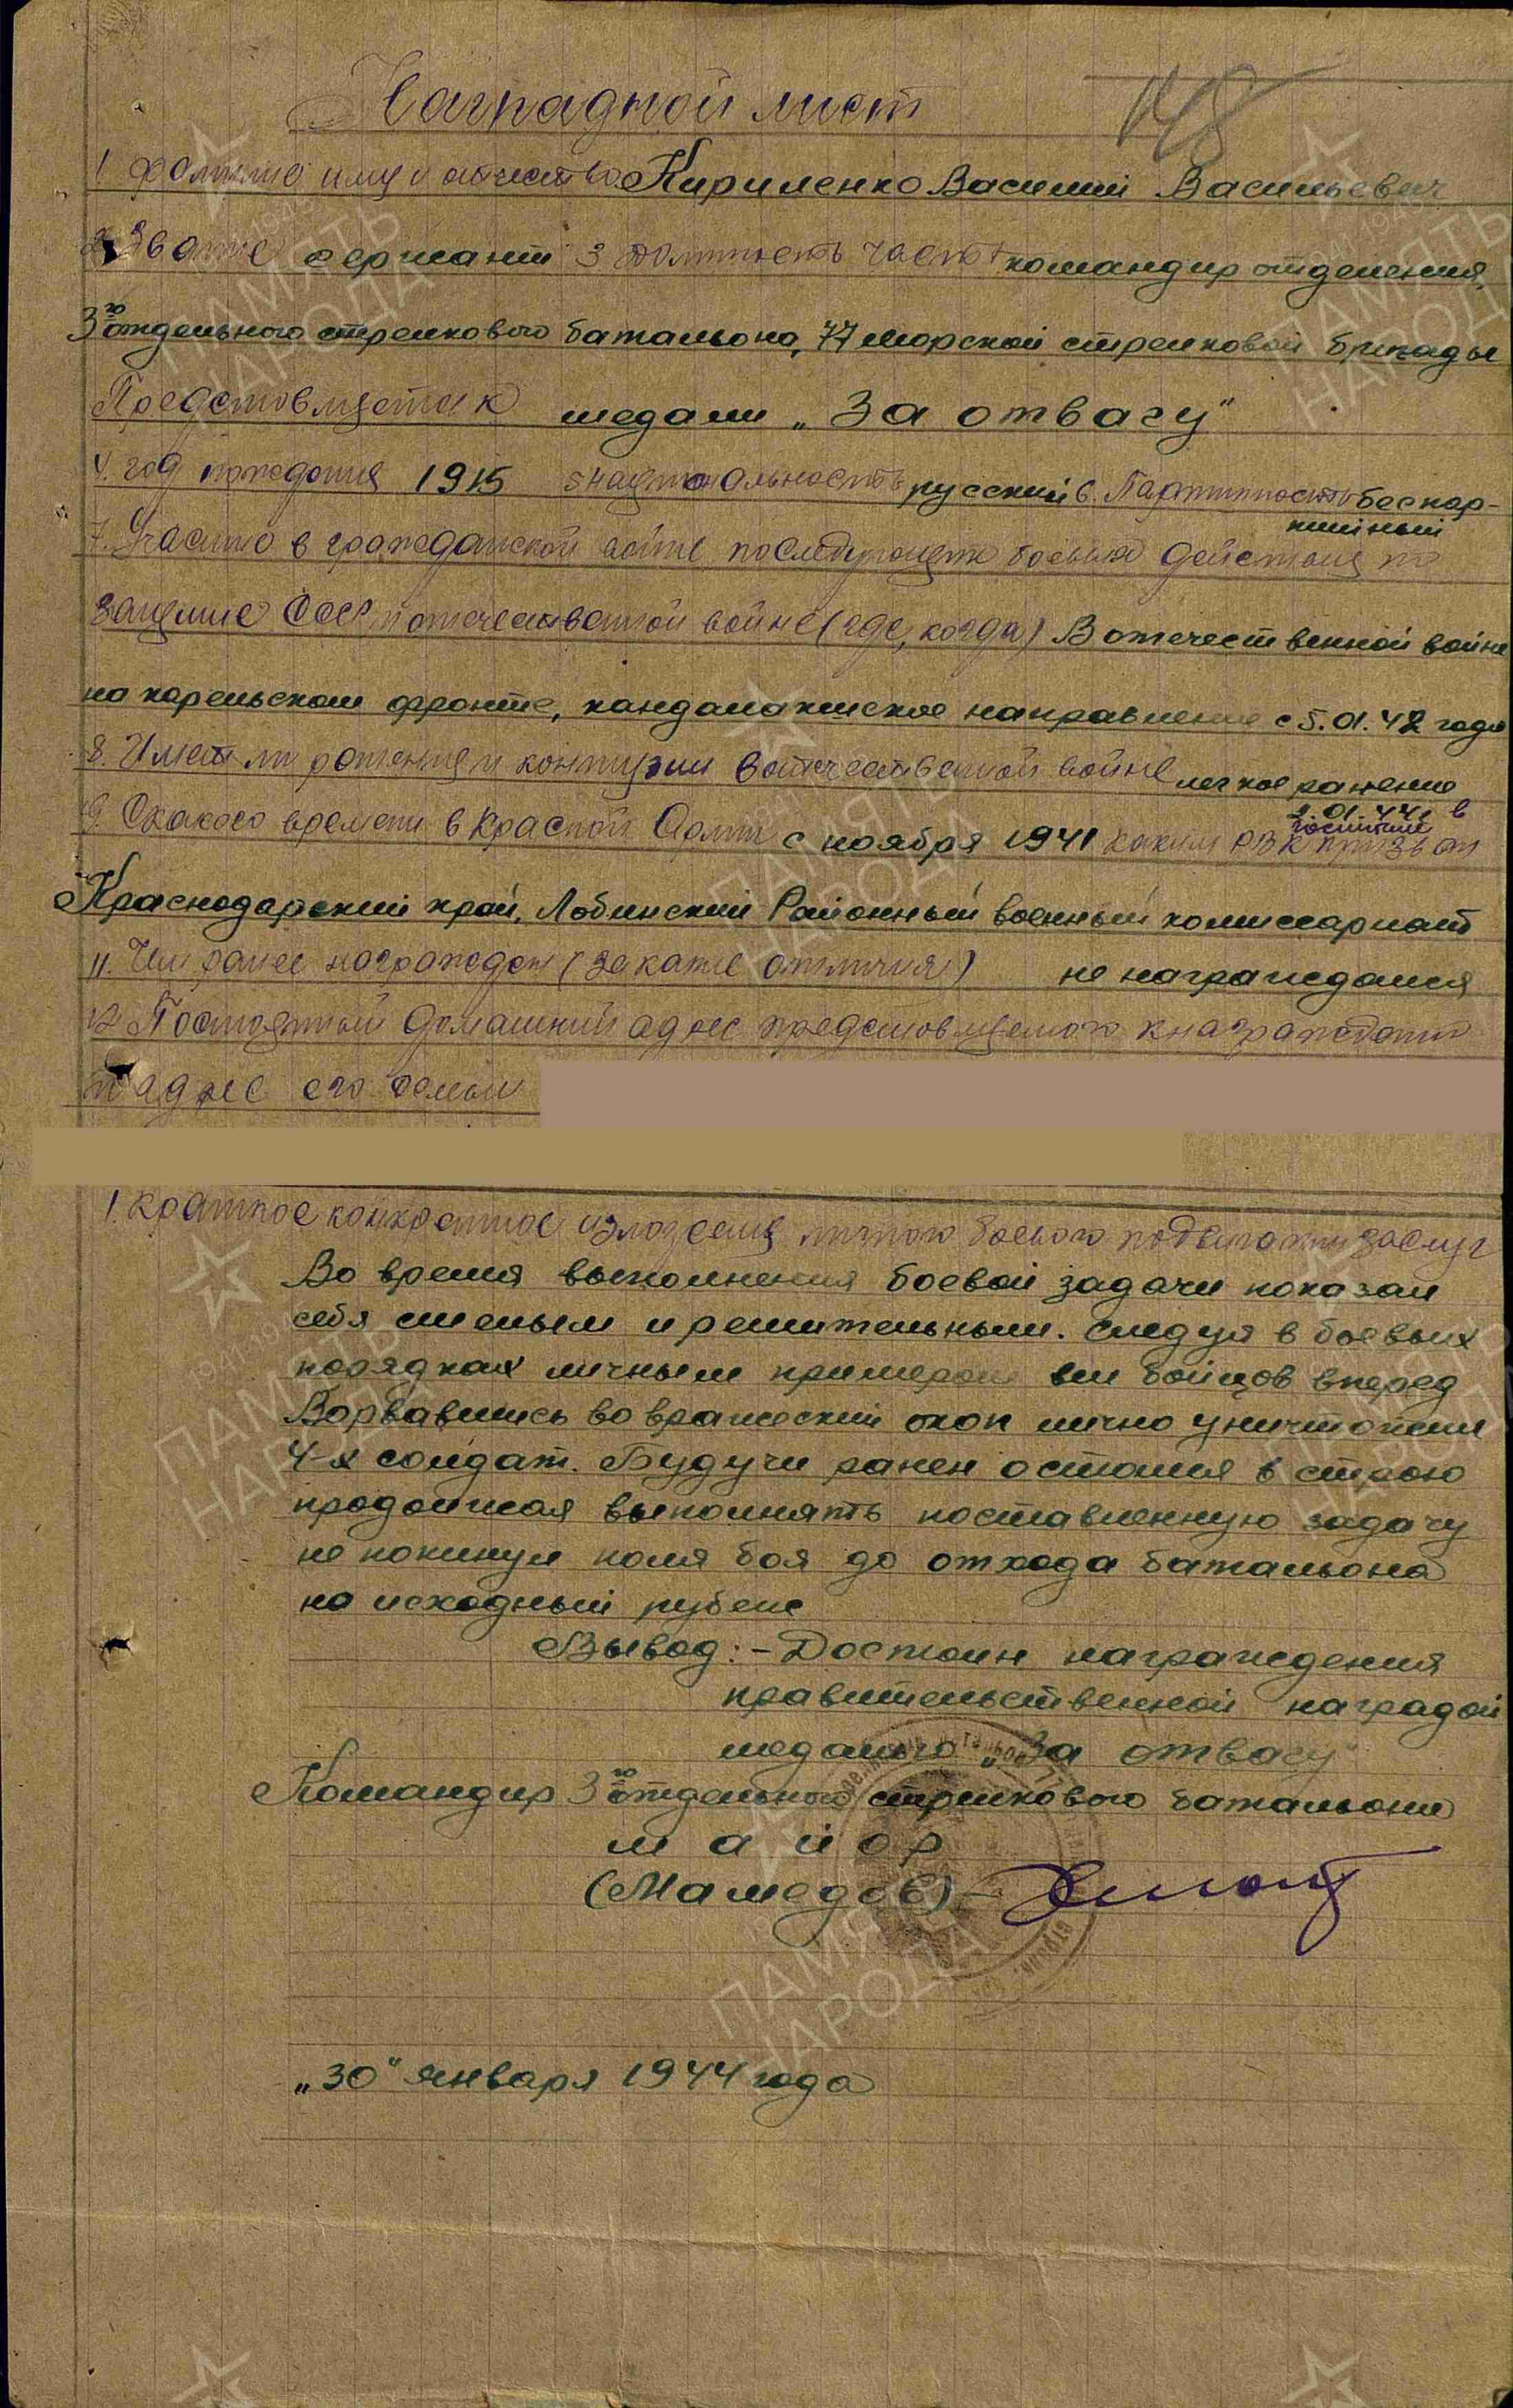 Наградной лист
148
1. Фамилию имя и отчество Кириленко Василий Васильевич
2. Звание сержант 3 должность часть командир отделения,
3го отдельного стрелкового батальона, 77 морской стрелковой бригады
Представляется к медали „За отвагу"
4. год рождения 1915 5 национальность русский 6. Партийность беспар-
тийный
7. Участие в гражданской войне последующем боевых действиях по
защите СССР и отечественной войне (где, когда) В отечественной войне
на карельском фронте, кандалакшское направление с 5.01.42 года
8. Имеет ли ранения и контузии в отечественной войне легкое ранение
01.44 в
9. С какого времени в Красной Армии с ноября 1941 каким РВК призван
Краснодарский край, Лобинский Районный военный комиссариат
11. Чем ранее награжден (за какие отличия) не награждался
12 Постоянный домашний адрес представляемого к награждению
и адрес его семьи
1. Краткое конкретное изложение личного боевого подвига или заслуг
Во время выполнения боевой задачи показал
себя смелым и решительным. Следуя в боевых
порядках личным примером вел бойцов вперед
Ворвавшись во вражеский окоп лично уничтожил
4-х солдат. Будучи ранен остался в строю
продолжая выполнять поставленную задачу
не покинул поля боя до отхода батальона
на исходный рубеж
Вывод: - Достоин награждения
правительственной наградой
медалью „За отвагу"
Командир 3го отдельного стрелкового батальона
майор
(Мамедов) -
„30" января 1944 года
ПАМЯТЬ НАРОДА